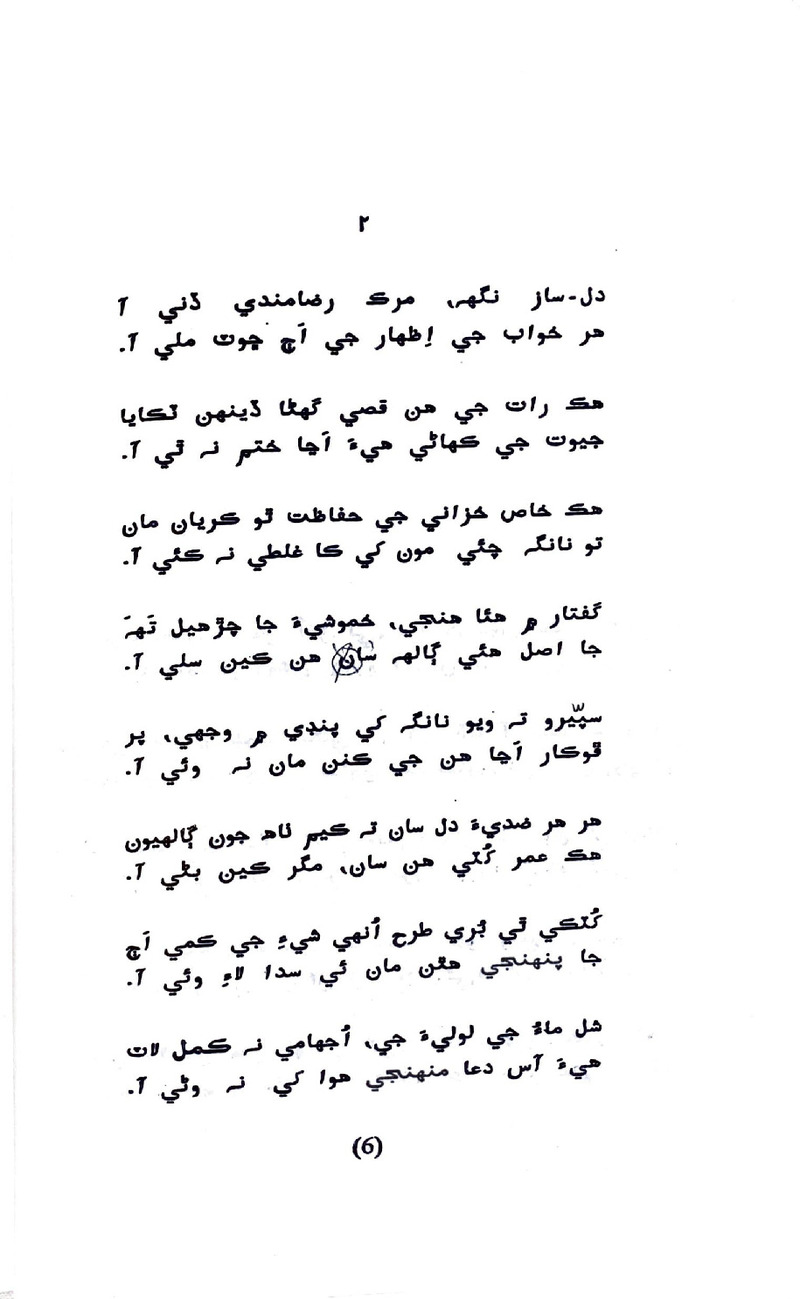 ۲
دل-ساز نگهہ، مرڪ رضامندي ڏني آ
هر خواب جي اِظهار جي اَڄ ڇوٽ ملي آ.
هڪ رات جي هن قصي گهڻا ڏينهن ٽڪايا
جيوت جي ڪهاڻي هيءَ اَڃا ختم نہ ٿي آ.
هڪ خاص خزاني جي حفاظت ٿو ڪريان مان
تو نانگہ چئي مون کي ڪا غلطي نہ ڪئي آ.
گفتار ۾ هئا هنجي، خموشيءَ جا چڙهيل تَهہَ
جا اصل هئي ڳالهہ سا هن ڪين سلي آ.
سپّيرو تہ ويو نانگہ کي پنڊي ۾ وجهي، پر
ڦوڪار اَڃا هن جي ڪنن مان نہ وئي آ.
هر هر ضديءَ دل سان تہ ڪيم ٺاھ جون ڳالهيون
هڪ عمر کُٽي هن سان، مگر ڪين بڻي آ.
کُٽڪي ٿي بُري طرح اُنهي شيءِ جي ڪمي اَڄ
جا پنهنجي هٿن مان ئي سدا لاءِ وئي آ.
شل ماءُ جي لوليءَ جي، اُجهامي نہ ڪمل لاٽ
هيءَ آس دعا منهنجي هوا کي نہ وڻي آ.
(6)